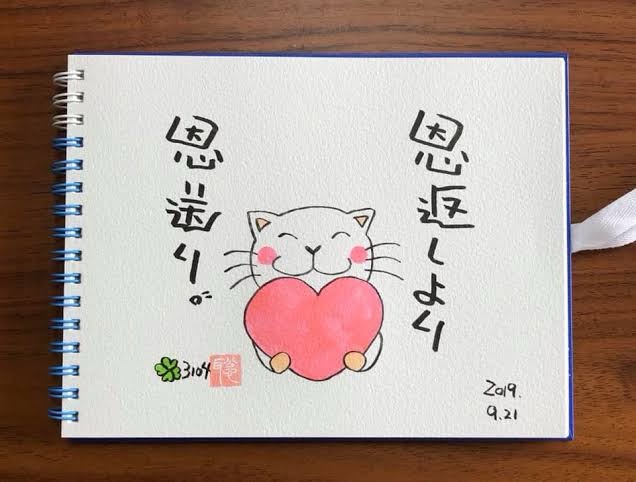 恩返しより
恩送り。
3104
聡
2019.
9.21